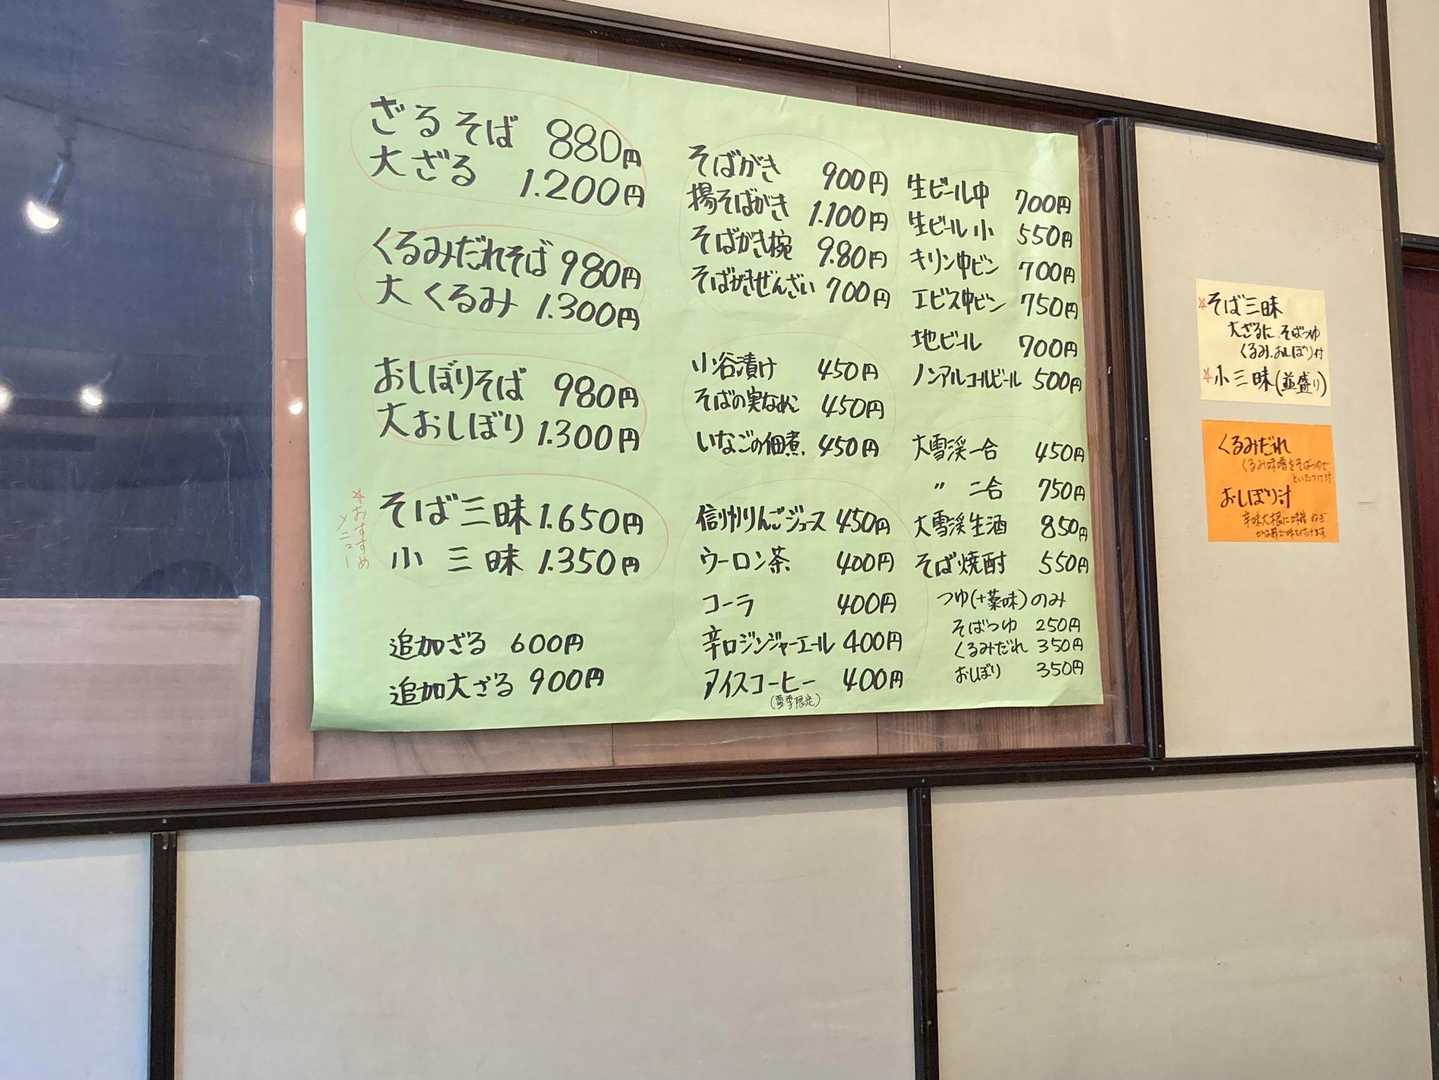 ざるそば 880円
大ざる 1.200円
くるみだれそば 980円
大くるみ 1.300円
おしぼりそば 980円
大おしぼり 1.300円
*おすすめ
メニュー
そば三昧 1.650円
小三昧 1.350円
追加ざる 600円
追加大ざる 900円
そばがき 900円
揚そばがき 1.100円
そばがき椀 9.80円
そばがきぜんざい 700円
小谷漬け 450円
そばの実なめこ 450円
いなごの佃煮 450円
信州りんごジュース 450円
ウーロン茶 400円
コーラ 400円
辛口ジンジャーエール 400円
アイスコーヒー 400円
(夏季限定)
生ビール中 700円
生ビール小 550円
キリン中ビン 700円
エビス中ビン 750円
地ビール 700円
ノンアルコールビール 500円
大雪渓一合 450円
〃 二合 750円
大雪渓生酒 850円
そば焼酎 550円
つゆ(+薬味)のみ
そばつゆ 250円
くるみだれ 350円
おしぼり 350円
*そば三昧
大ざるに そばつゆ
くるみ、おしぼり付
*小三昧(並盛り)
くるみだれ
くるみ味噌をそばつゆで
といたつけ汁
おしぼり汁
辛味大根に味噌 ねぎ